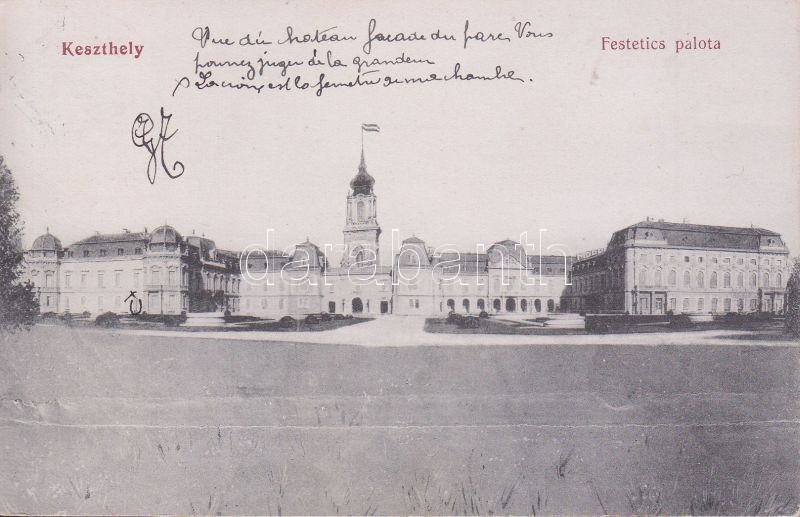 Keszthely
Festetics palota
Vue du chateau facade du parc Vous
pouvez juger de la grandeur
La croix est la fenetre de ma chambre.
darabanth